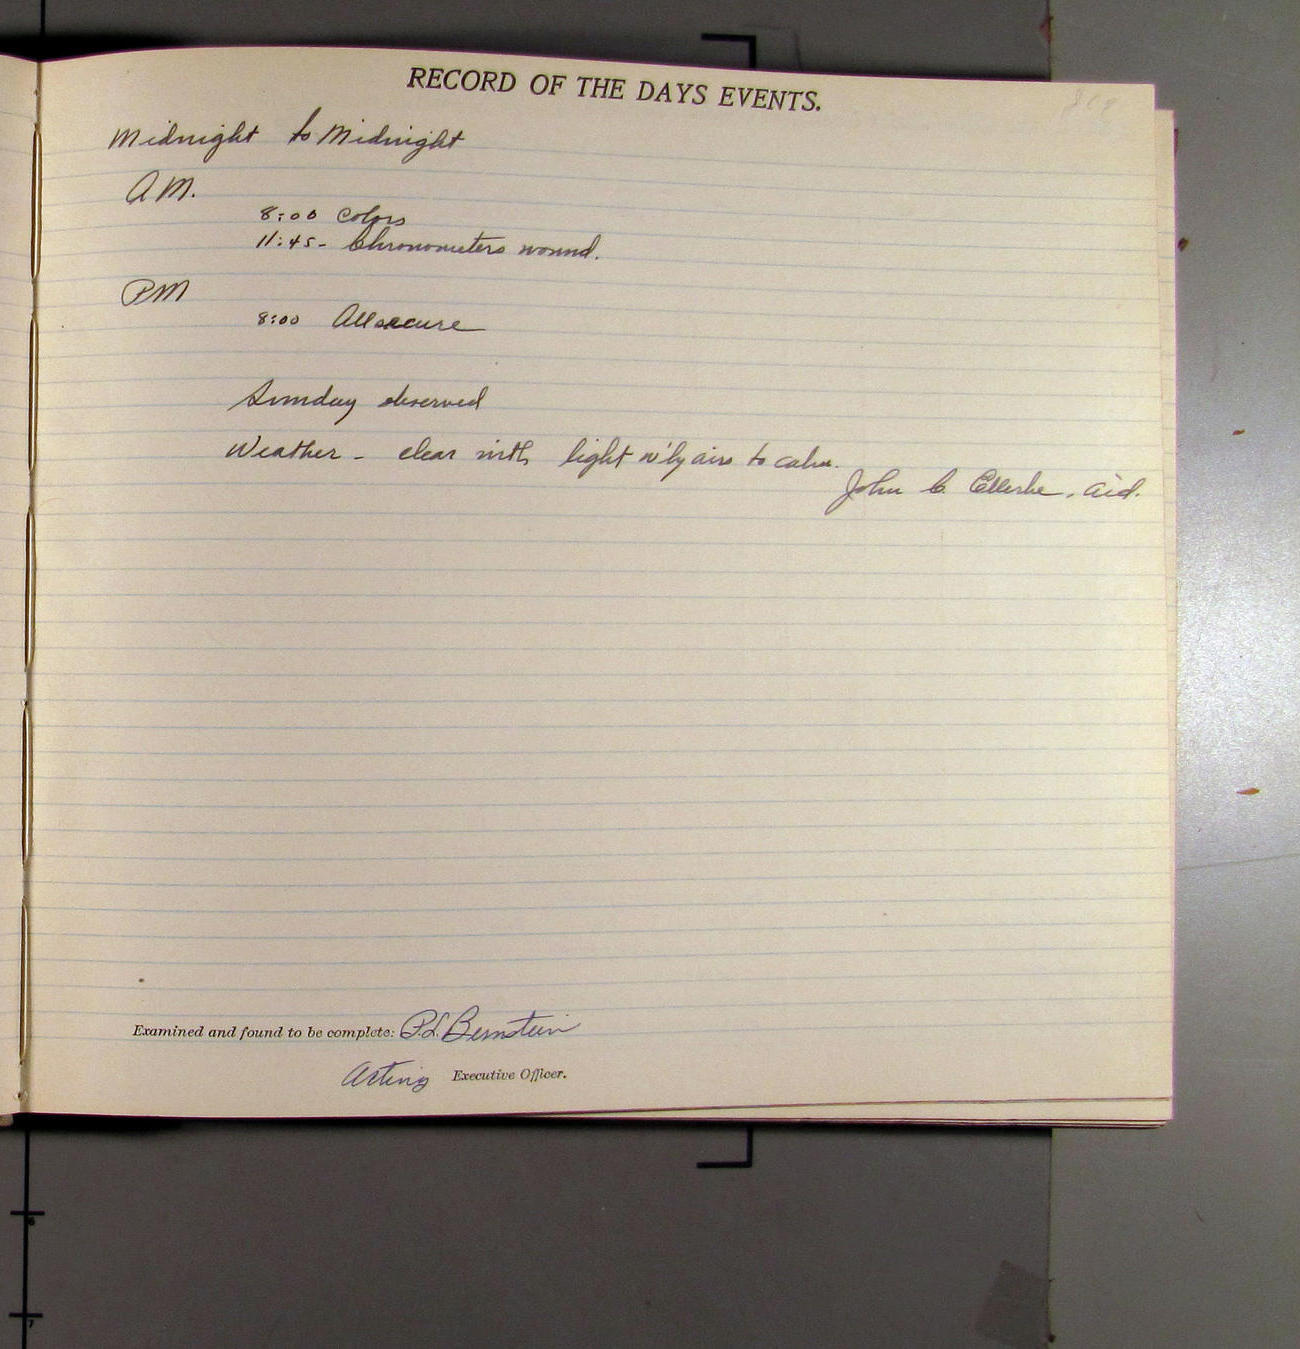 RECORD OF THE DAYS EVENTS.
Midnight to Midnight
AM.
8:00 Colors
11:45- Chronometers wound.
PM
8:00 All secure
Sunday observed
Weather - clear with light n'ly airs to calm.
John C. Ellerbe, Aid.
Examined and found to be complete: P.L. Bernstein
Acting Executive Officer.
6
7